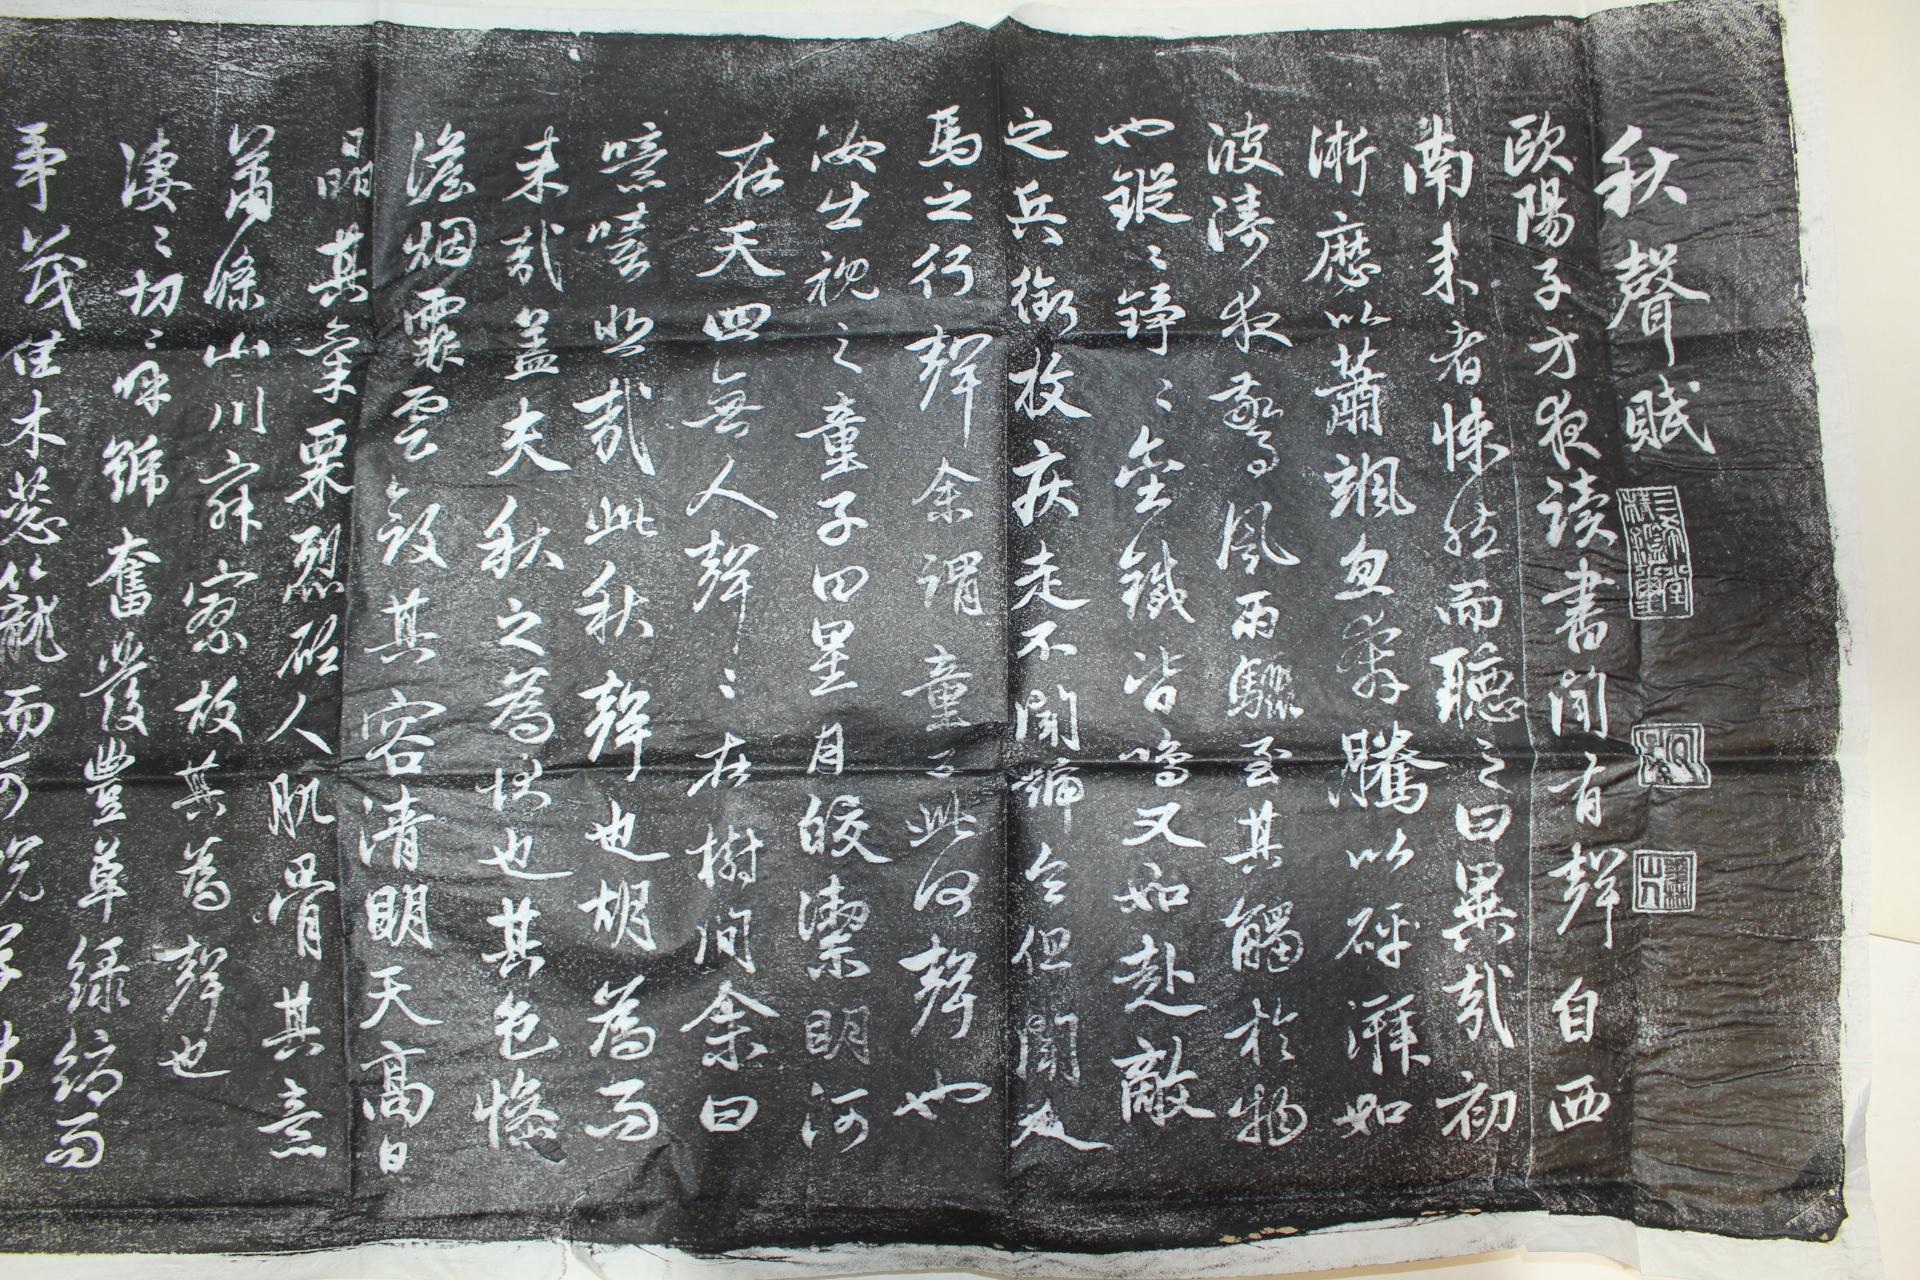 秋聲賦
三希堂精鑑璽
歐陽子方夜读書聞有聲自西
南来者悚然而聽之曰異哉初
淅瀝以蕭颯忽奔騰以砰湃如
波濤夜驚風雨驟至其觸於物
也鏦〻錚〻金鐵皆鳴又如赴敵
之兵銜枚疾走不聞號令但聞人
馬之行聲余謂童子此何聲也
汝出視之童子曰星月皎潔明河
在天四無人聲〻在樹间余曰
噫嘻悲哉此秋聲也胡為而
来哉盖夫秋之為狀也其色惨
澹烟霏雲斂其容清明天高日
晶其氣栗烈砭人肌骨其意
蕭條山川寂寥故其為聲也
淒〻切〻呼號奮發豐草緑縟而
爭茂佳木葱籠而可悦